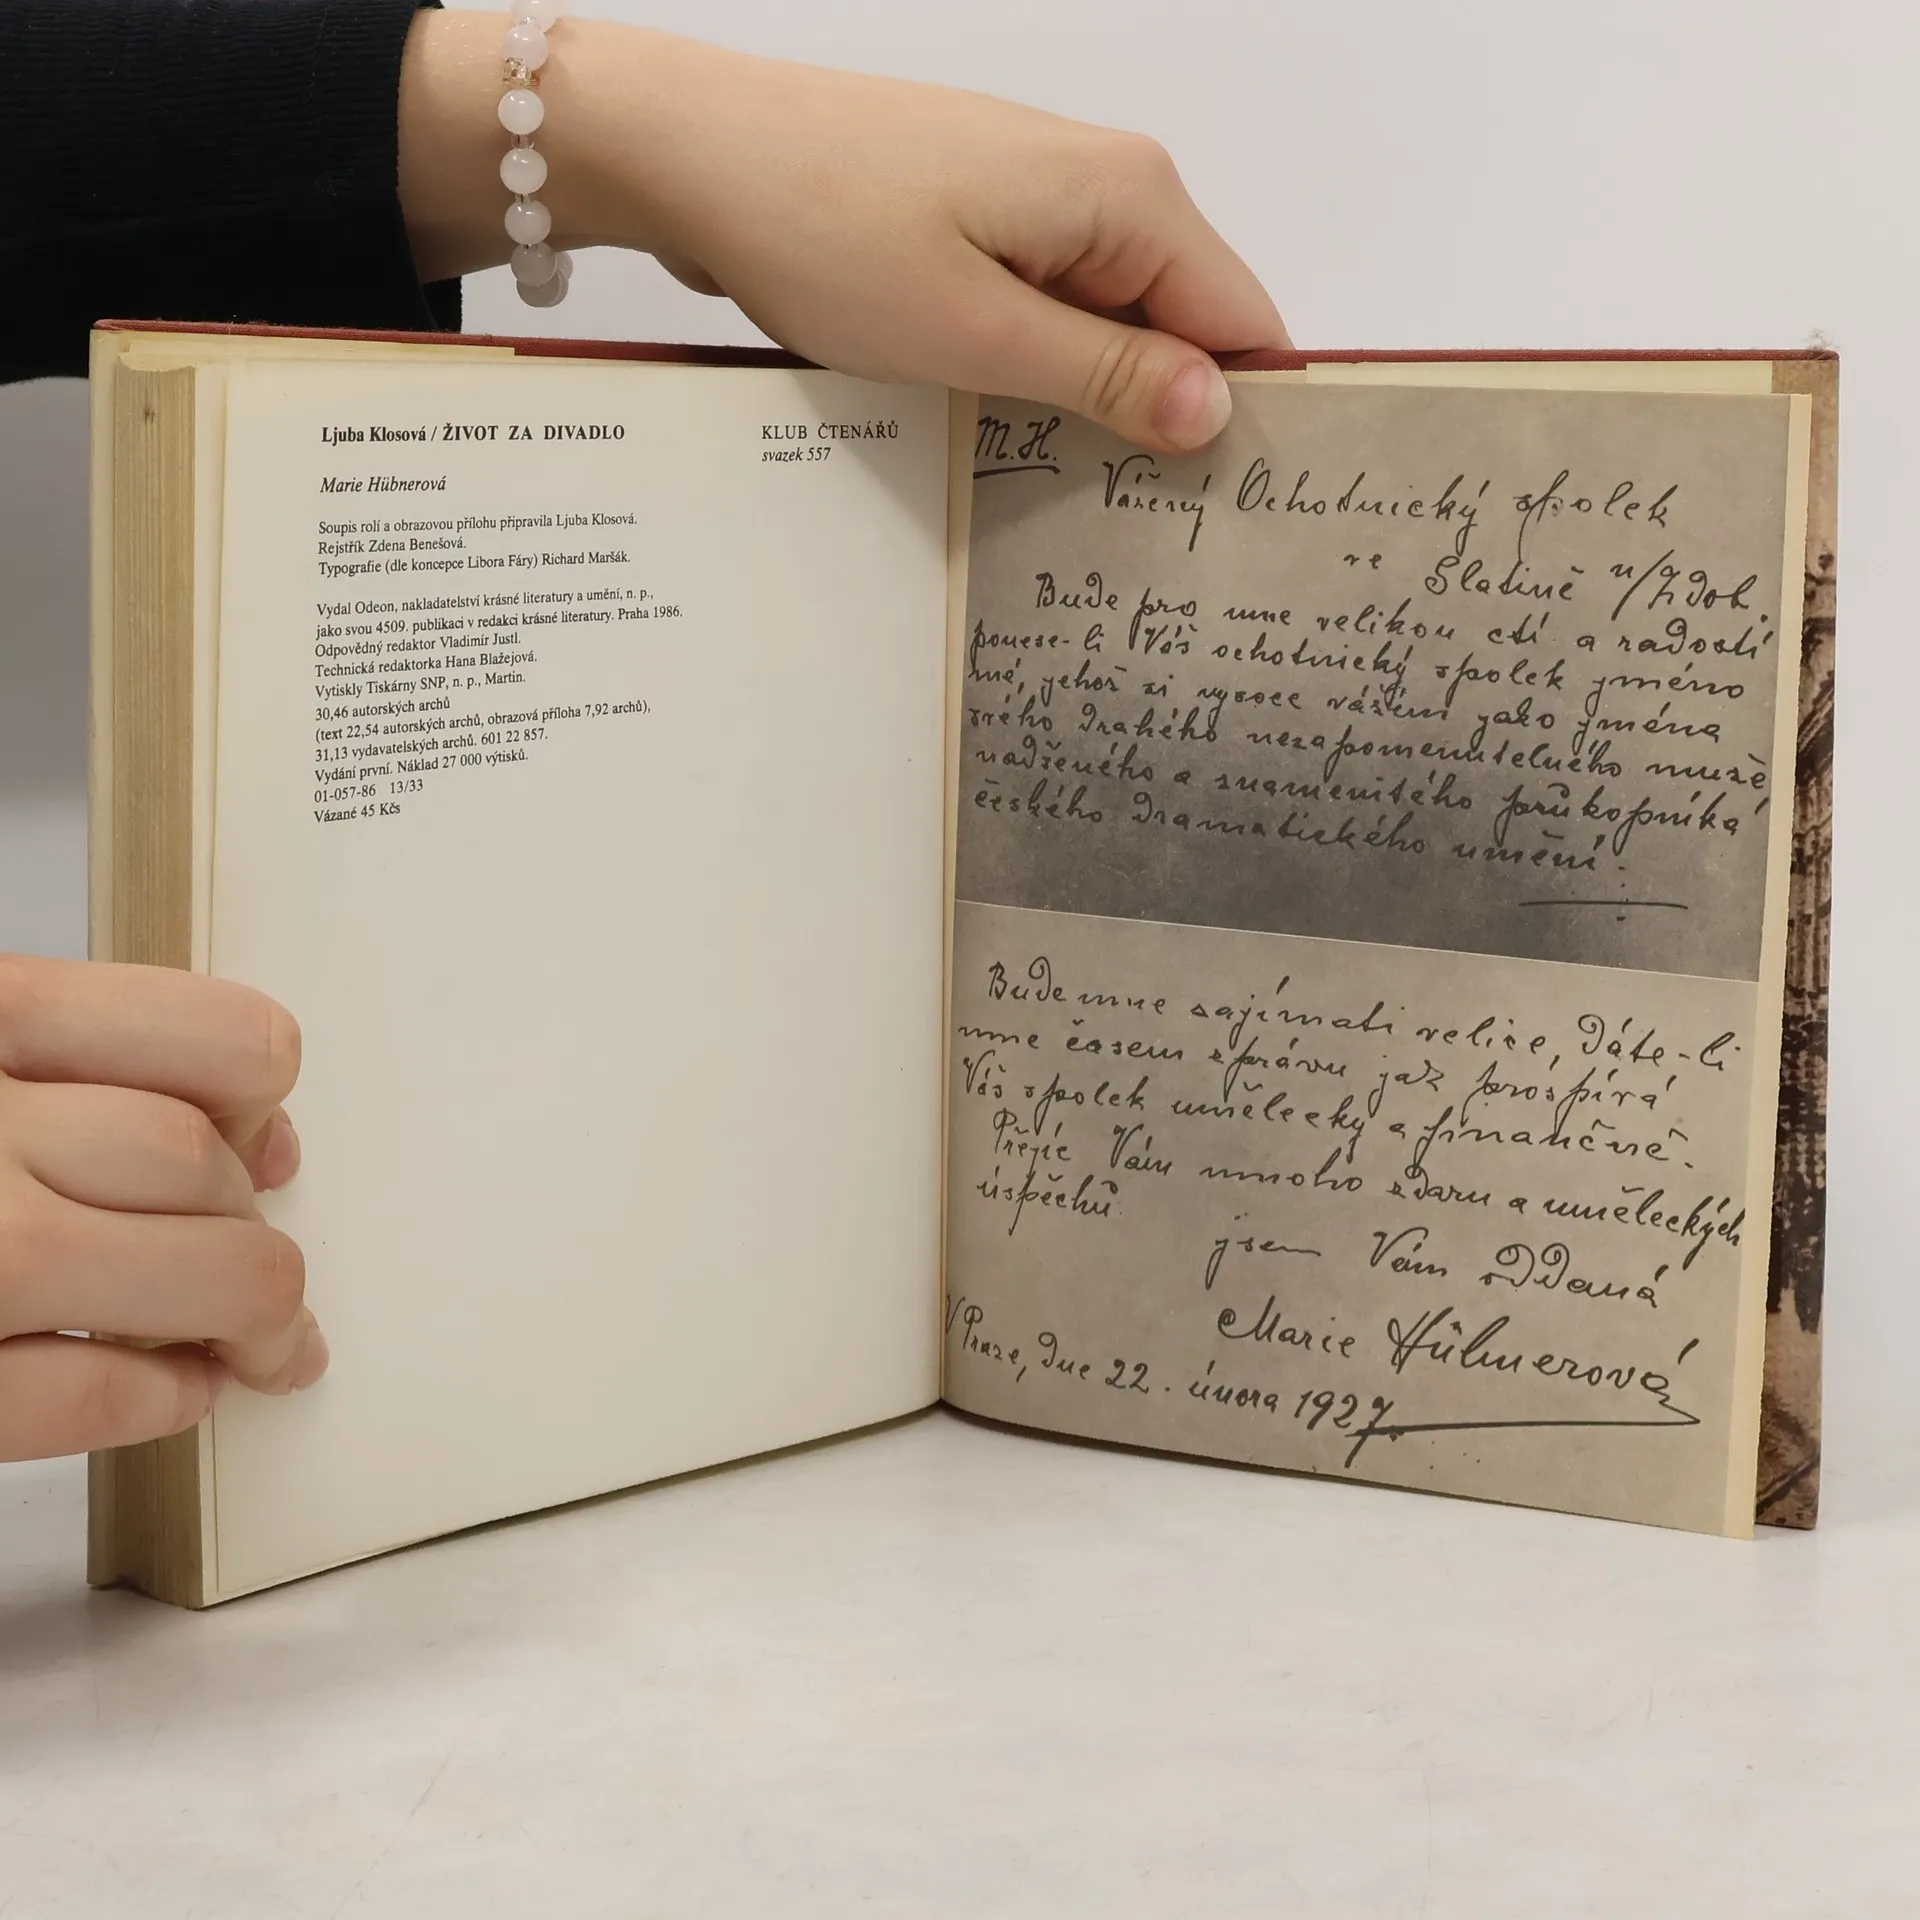 Ljuba Klosová / ŽIVOT ZA DIVADLO
KLUB ČTENÁŘŮ
svazek 557
Marie Hübnerová
Soupis rolí a obrazovou přílohu připravila Ljuba Klosová.
Rejstřík Zdena Benešová.
Typografie (dle koncepce Libora Fáry) Richard Maršák.
Vydal Odeon, nakladatelství krásné literatury a umění, n. p.,
jako svou 4509. publikaci v redakci krásné literatury. Praha 1986.
Odpovědný redaktor Vladimír Justl.
Technická redaktorka Hana Blažejová.
Vytiskly Tiskárny SNP, n. p., Martin.
30,46 autorských archů
(text 22,54 autorských archů, obrazová příloha 7,92 archů),
31,13 vydavatelských archů. 601 22 857.
Vydání první. Náklad 27 000 výtisků.
01-057-86 13/33
Vázané 45 Kčs
M.H.
Vážený Ochotnický spolek
ve Slatině n/Zdob.
Bude pro mne velikou ctí a radostí
ponese-li Váš ochotnický spolek jméno
mé, jehož si vysoce vážím jako jména
svého drahého nezapomenutelného muže
nadšeného a znamenitého průkopníka
českého dramatického umění.
Bude mne zajímati velice, dáte-li
mne časem zprávu jak prospívá
Váš spolek umělecky a finančně.
Přejíc Vám mnoho zdaru a uměleckých
úspěchů
jsem Vám oddaná
Marie Hübnerová
V Praze, dne 22. února 1927.